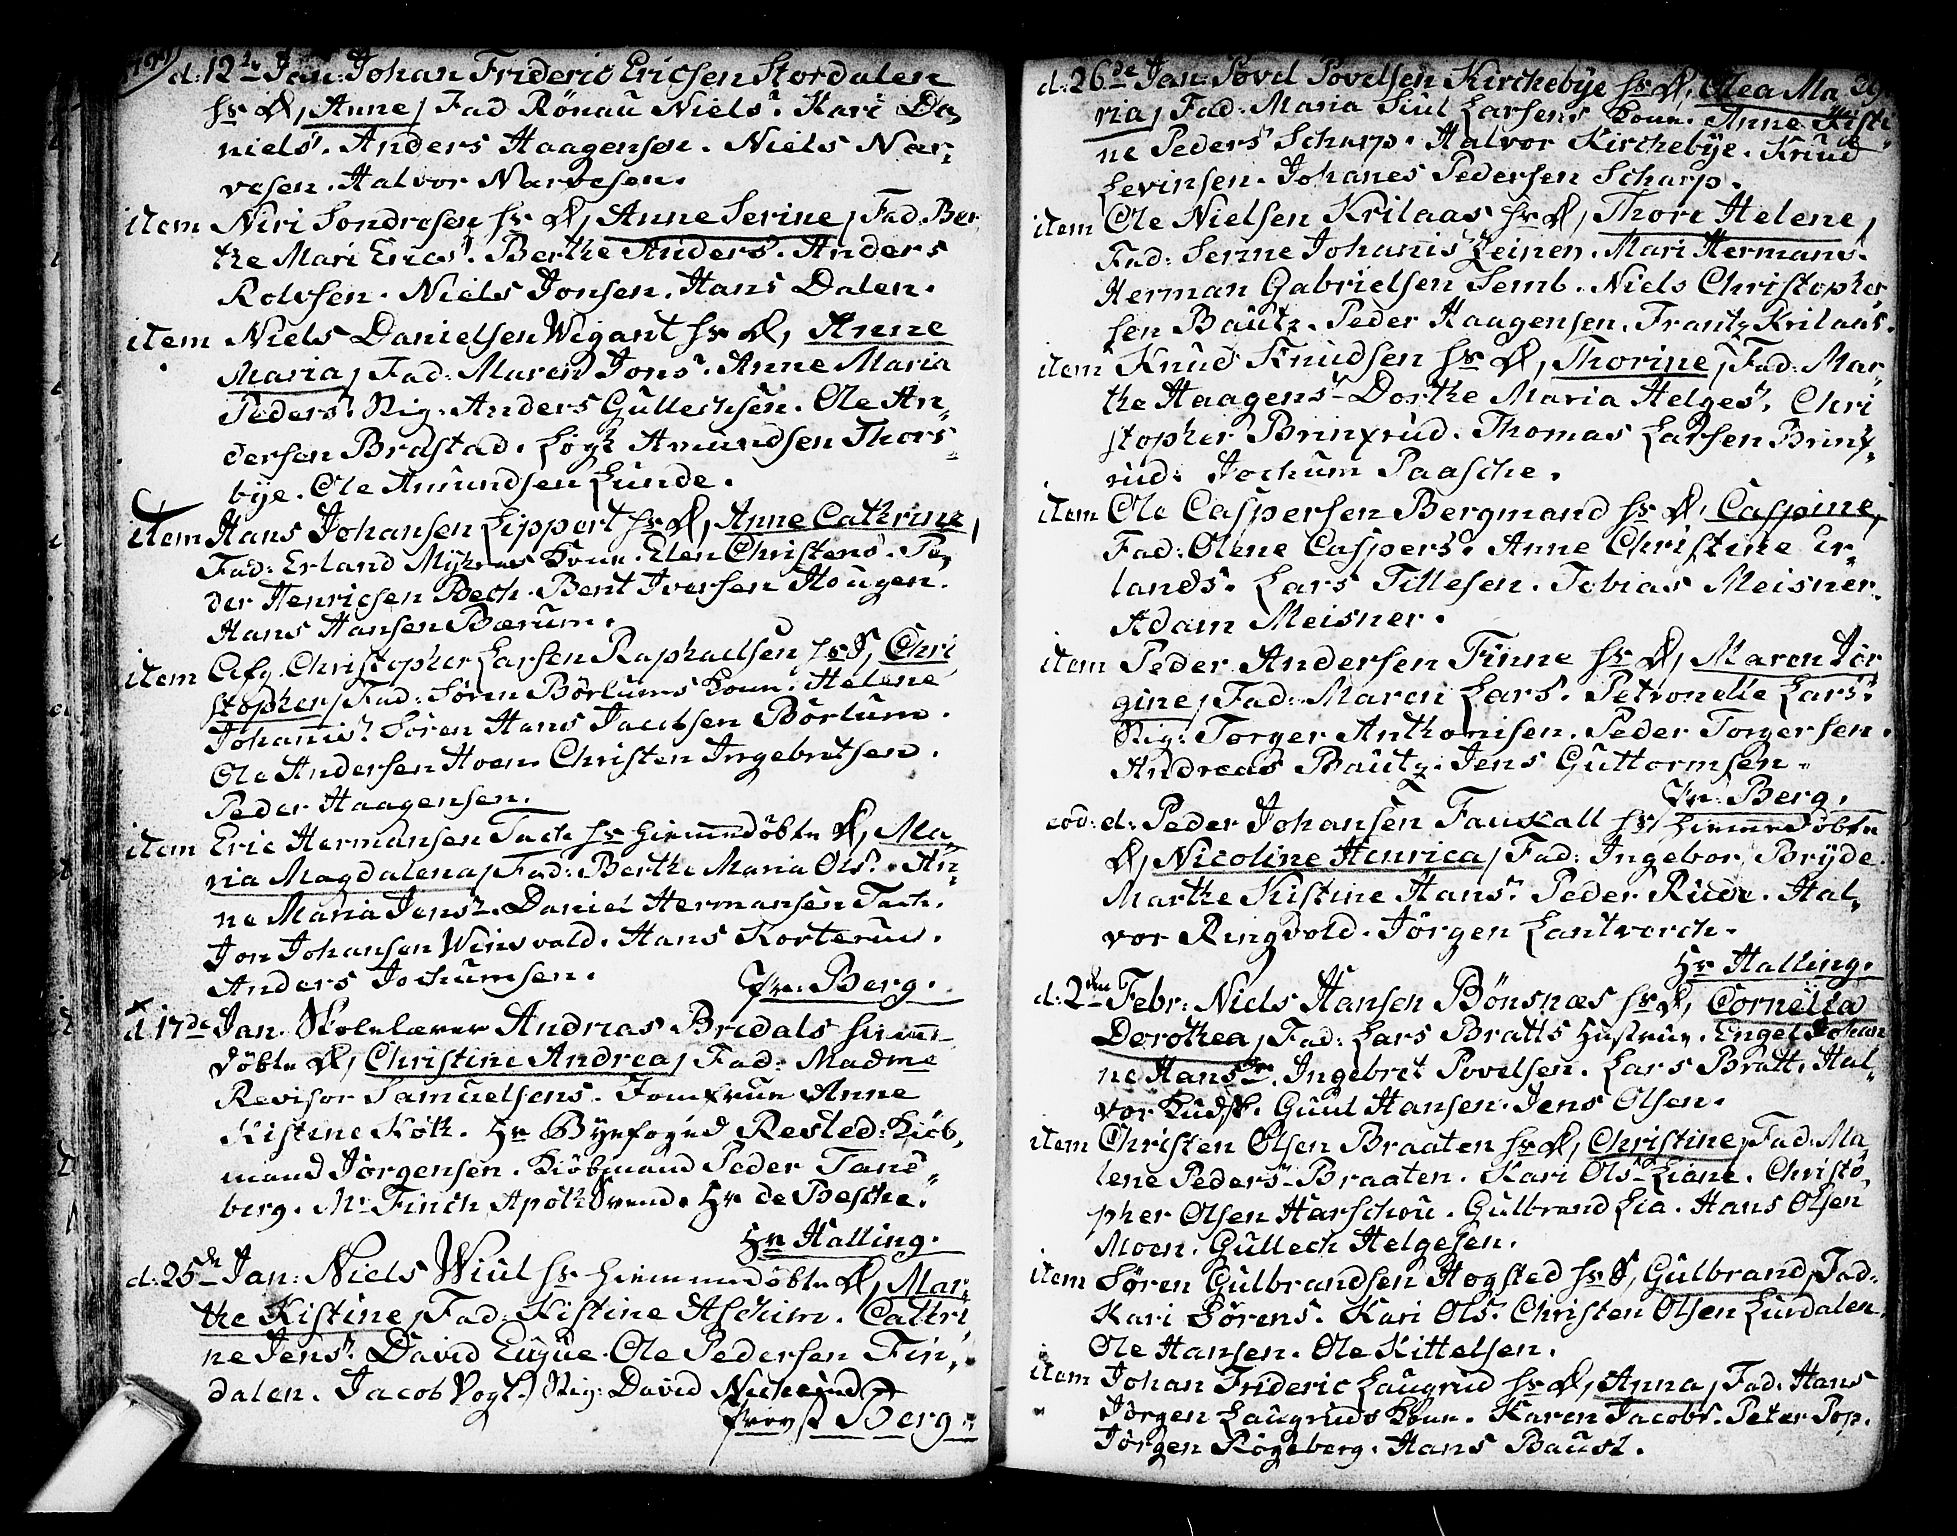 d: 12te Jan: Johan Frideric Ericsen Stordalen
hs D, Anne / Fad Rönau Niels. Kari Da,
niels. Anders Haagensen. Niels Nar-
vesen. Halvor Narvesen.
item Niri Sondresen hs D, Anne Serine / Fad. Ber
the Mari Erics. Berthe Anders. Anders
Rolvsen. Niels Jonsen. Hans Dalen.
item Niels Danielsen Wigant hs D, Anne
Maria / Fad: Maren Jons. Anne Maria
Peders. Nig: Anders Gullechsen. Ole An-
dersen Brastad. Amundsen Thors
bye. Ole Amundsen Lunde.
item Hans Johansen Lippert hs D, Anne Cathrine /
Fad: Erland Myhrens Kone. Elen Christens. Pe,
der Henricsen Bech. Bent Iversen Hougen.
Hans Hansen Bærum.
item Afg. Christopher Larsen Raphaelsen hs S, Chri
stopher / Fad: Sören Börlums Kone. Helene
Johannis. Sören Hans Jacobsen Börlum.
Ole Andersen Hoen. Christen Ingebretsen.
Peder Haagensen.
item Eric Hermansen Tach hs hiemmedöbte D, Ma
ria Magdalena / Fad: Berthe Maria Ols. An-
ne Maria Jens. Daniel Hermansen Tach.
Jon Johansen Winsvald. Hans Korterud.
Anders Jochumsen.
Pr: Berg.
d 17de Jan. Skolelærer Andreas Bredals hiemme
döbte D, Christine Andrea / Fad: Madme
Revisor Samuelsens. Jomfrue Anne
Kistine Köth. Hr Byefoged Rested. Kiöb,
mand Jörgensen. Kiöbmand Peder Tans-
berg. Mr Finch Apoth. Svend. Hr de Besche.
Hr Halling.
d: 25de Jan: Niels Wiul hs hiemmedöbte D, Mar-
the Kistine / Fad: Kistine Aschim. Cathri
ne Jens. David Eugue. Ole Pedersen Fin,
dalen. Jacob Vogt. Nig: David
Provst Berg.
d: 26de Jan: Povel Povelsen Kirchebye hs D, Olea Ma
ria / Fad: Maria Siul Larsens Kone. Anne Kisti
ne Peders Scharp. Halvor Kirchebye. Knud
Levinsen. Johanes Pedersen Scharp.
item Ole Nielsen Krilaas hs D, Thore Helene /
Fad: Serine Johannis Leinen. Mari Hermans.
Herman Gabrielsen Semb. Niels Christopher
sen Bautz. Peder Haagensen. Frantz Krilaas.
item Knud Knudsen hs D, Thorine / Fad: Mar-
the Haagens. Dorthe Maria Helges. Chri
stopher Brinxrud. Thomas Larsen Brinx-
rud. Jochum Paasche.
item Ole Caspersen Bergmand hs D, Caspine /
Fad: Olene Caspers. Anne Christine Er-
lands. Lars Tillesen. Tobias Meisner.
Adam Meisner.
item Peder Andersen Finne hs D, Maren Jör
gine / Fad: Maren Lars. Petronelle Lars.
Nig: Torger Anthonisen. Peder Torgersen.
Andreas Bautz. Jens Guttormsen.
Pr: Berg.
eod: d: Peder Johansen Fauskall hs hiemmedöbte
D, Nicoline Henrica / Fad: Ingebor Bryde.
Marthe Kistine Hans. Peder Rude. Hal-
vor Ringvold. Jörgen Lantverch.
Hr Halling.
d: 2den Febr: Niels Hansen Bönsnæs hs D, Cornelia
Dorothea / Fad: Lars Bratts Hustrue. Engel Johan
ne Hans. Ingebret Povelsen. Lars Bratt. Hal-
vor Kudsk. Guul Hansen. Jens Olsen.
item Christen Olsen Braaten hs D, Christine / Fad: Ma,
lene Peders Braaten. Kari Ols Liane. Christo,
pher Olsen Harschou. Gulbrand Lia. Hans Olsen
Moen. Gullech Helgesen.
item Sören Gulbrandsen Hogsted hs S, Gulbrand / Fad:
Kari Sörens. Kari Ols. Christen Olsen Lurdalen.
Ole Hansen. Ole Kittelsen.
item Johan Frideric Laugrud hs D, Anna / Fad: Hans
Jörgen Laugruds Kone. Karen Jacobs. Peter Pop.
Jörgen Rögeberg. Hans Baust.